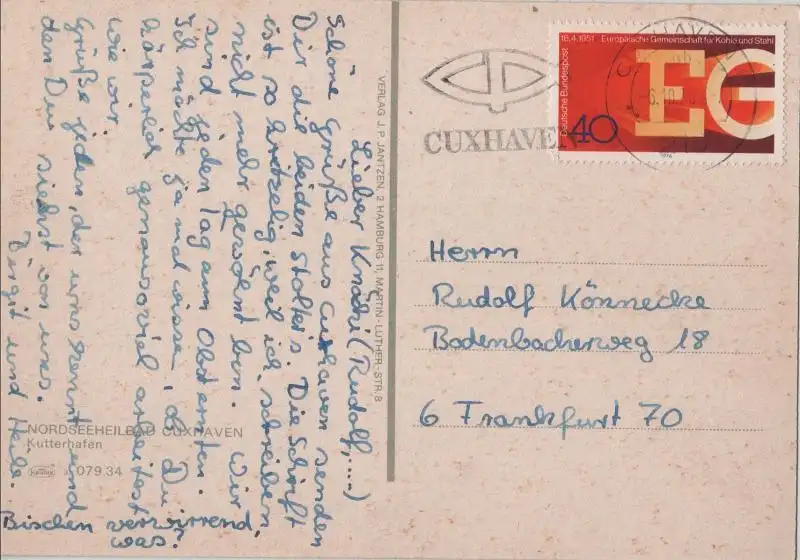 Lieber Knödri (Rudolf, ....)
Schöne Grüße aus Cuxhaven senden
Dir die beiden Stolters. Die Schrift
ist so kratzelig, weil ich schreiben
nicht mehr gewöhnt bin. Wir
sind jeden Tag am Obsternten.
Ich möchte ja mal wissen, ob Du
körperlich genausoviel arbeitest
wie wir.
Grüße jeden, der uns kennt und
den Du siehst von uns.
Birgit und Heile.
Bischen verwirrend,
was?
VERLAG J. P. JANTZEN, 2 HAMBURG 11, MARTIN-LUTHER-STR. 8
NORDSEEHEILBAD CUXHAVEN
Kutterhafen
079 34
CUXHAVEN
18.4.1951 Europäische Gemeinschaft für Kohle und Stahl
Deutsche Bundespost
EG
40
1976
CUXHAVEN
Herrn
Rudolf Könnecke
Bodenbacherweg 18
6 Frankfurt 70